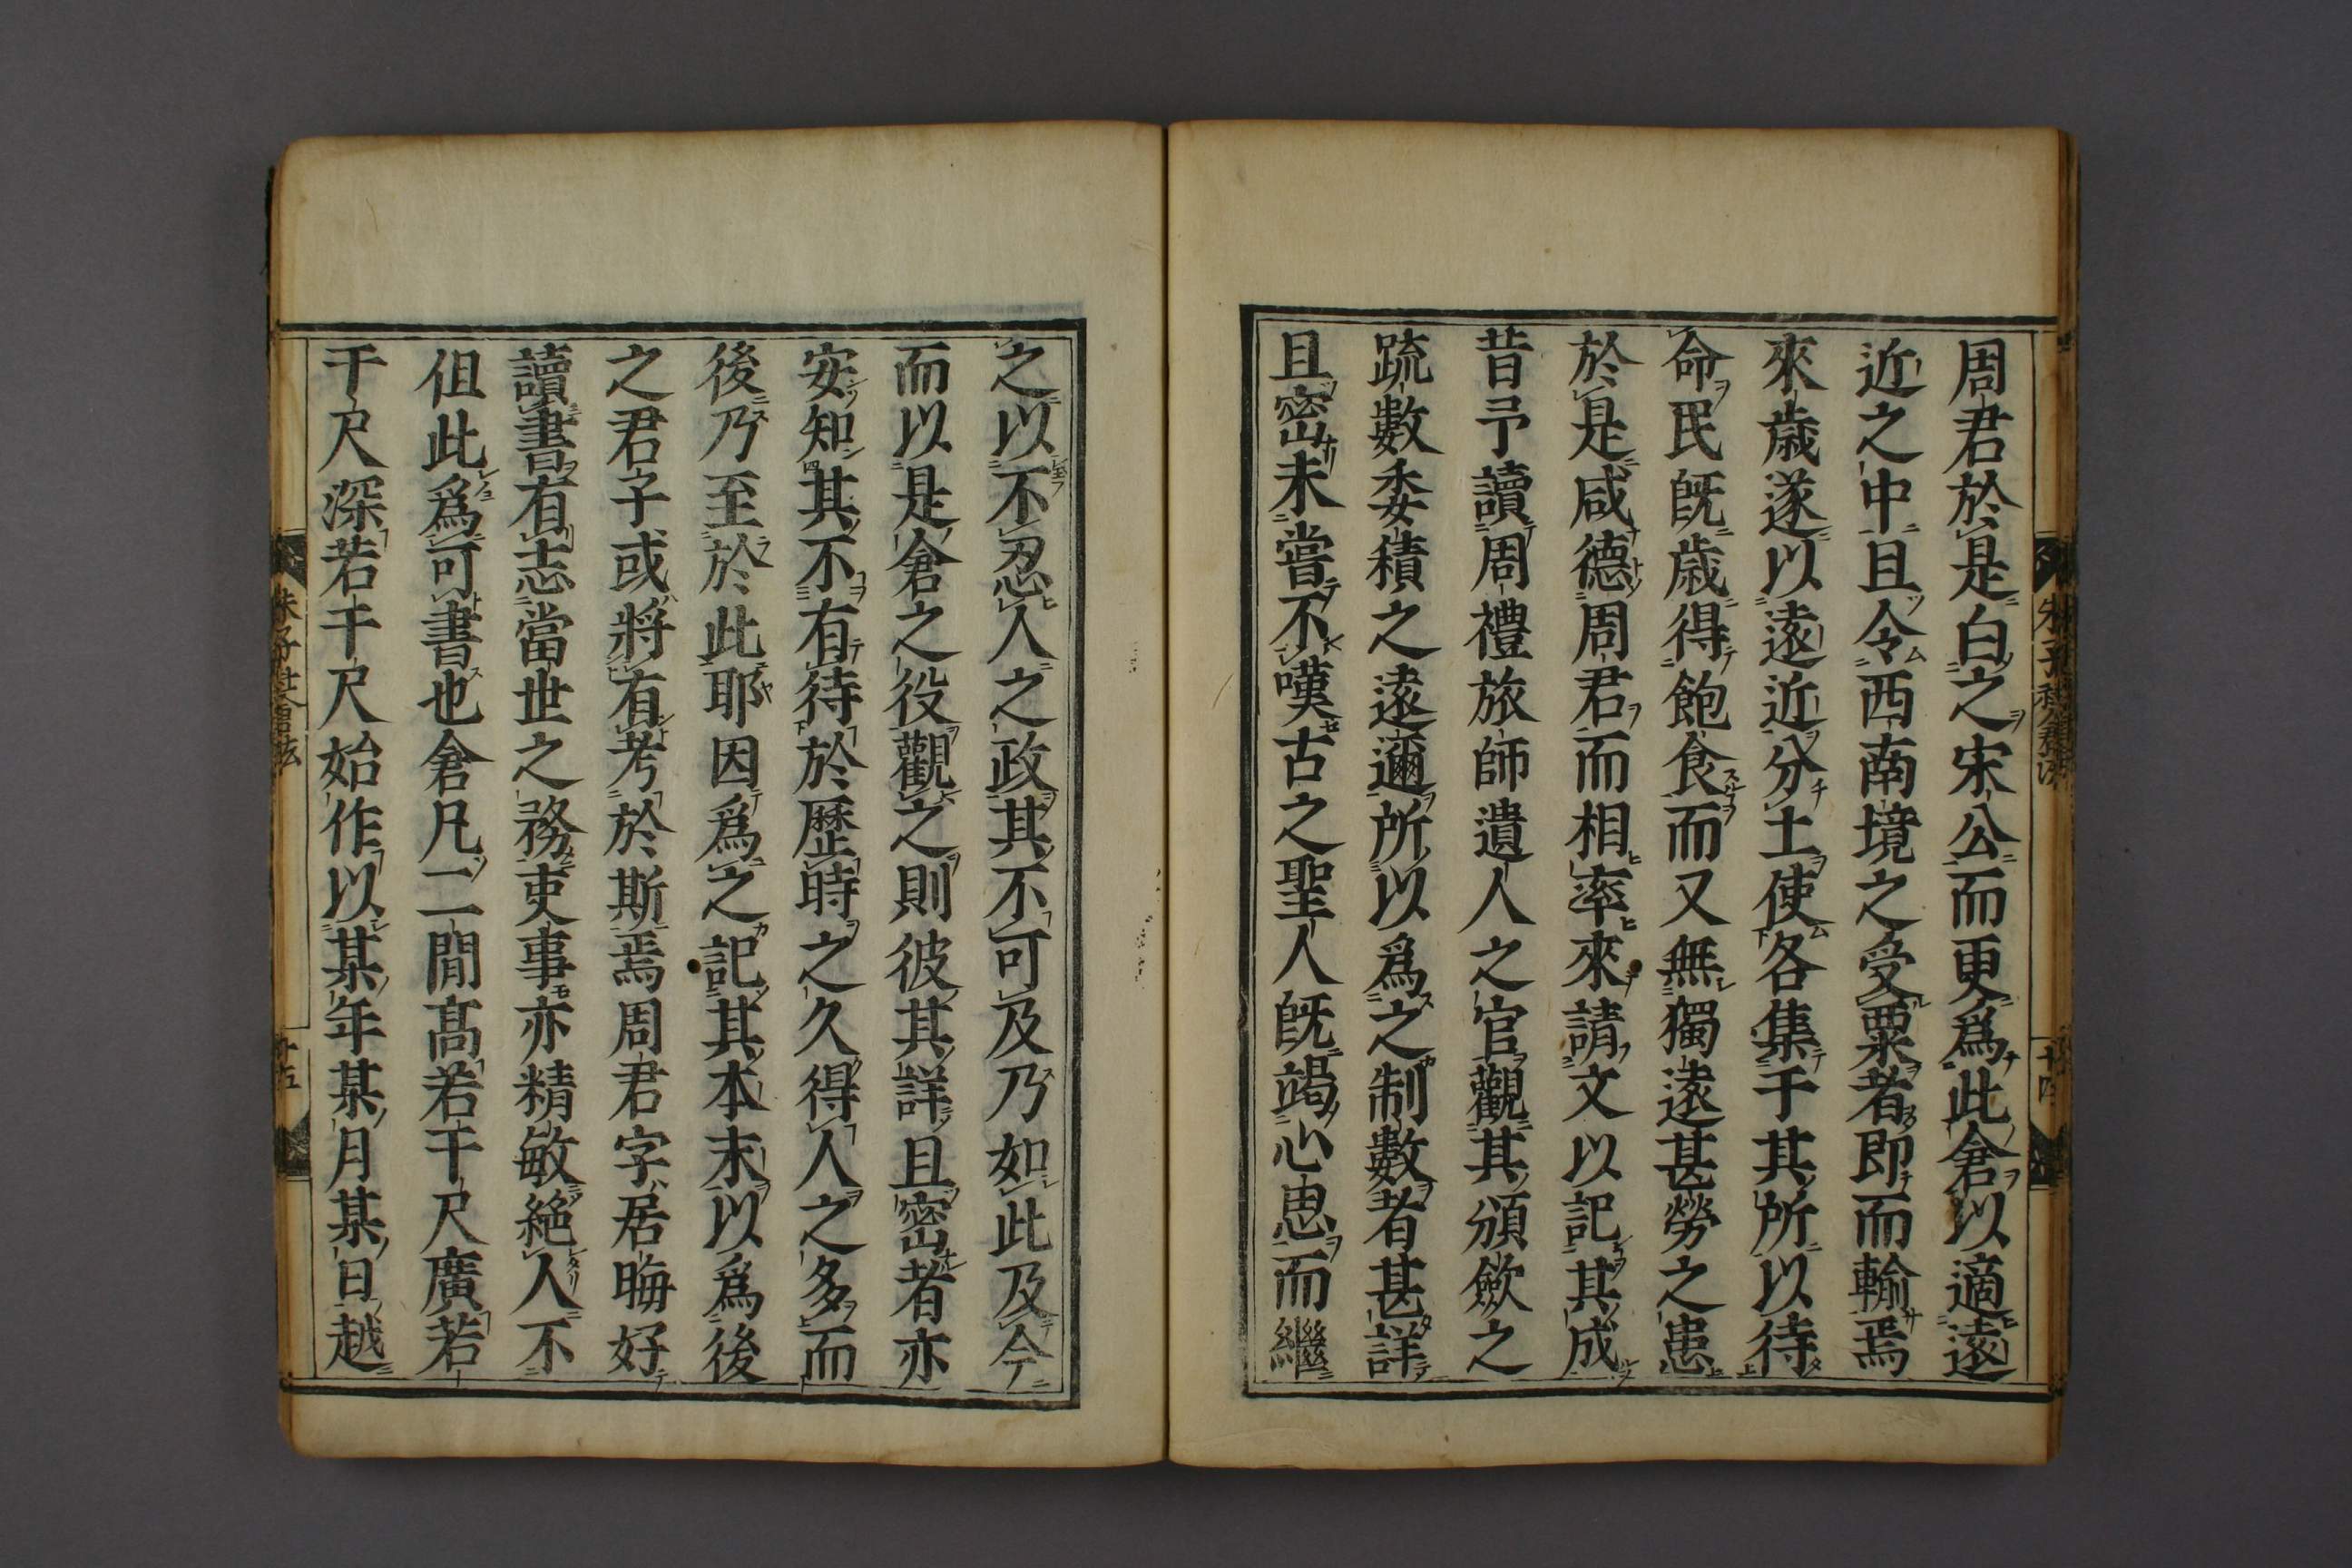 周君於是白之宋公而更爲此倉以適遠
近之中且令西南境之受粟者即而輸焉
來歲遂以遠近分土使各集于其所以待
命民旣歲得飽食而又無獨遠甚勞之患
於是咸德周君而相率來請文以記其成
昔予讀周禮旅師遺人之官觀其頒斂之
疏數委積之遠邇所以爲之制數者甚詳
且密未嘗不嘆古之聖人旣竭心思而繼
之以不忍人之政其不可及乃如此及今
而以是倉之役觀之則彼其詳且密者亦
安知其不有待於歷時之久得人之多而
後乃至於此耶因爲之記其本末以爲後
之君子或將有考於斯焉周君字居晦好
讀書有志當世之務吏事亦精敏絶人不
伹此爲可書也倉凡二間髙若干尺廣若
干尺深若干尺始作以某年某月某日越